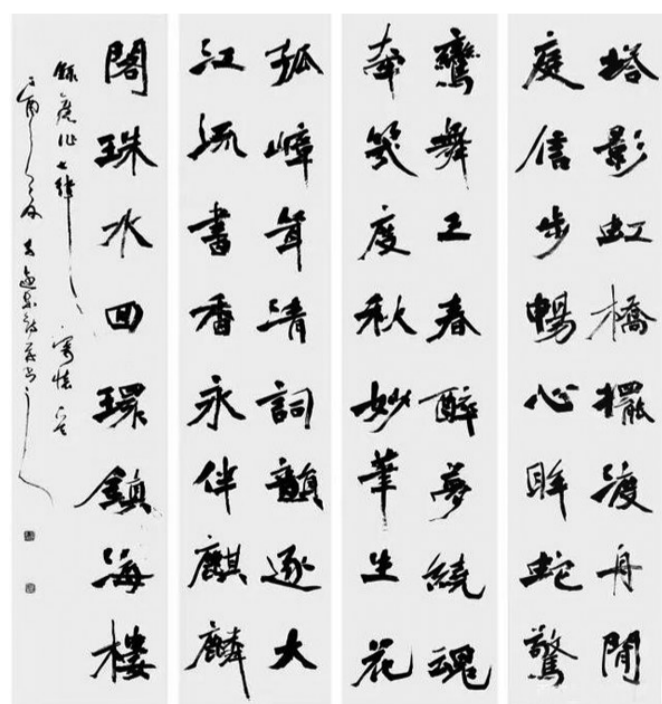 塔影虹橋擺渡舟閒
庭信步暢心眸蛇驚
鸞舞三春醉夢繞魂
牽幾度秋妙筆生花
孤嶂聳清詞韻逐大
江流書香永伴麒麟
閣珠水回環鎮海樓
錄舊作七律 寫懷
丁酉之